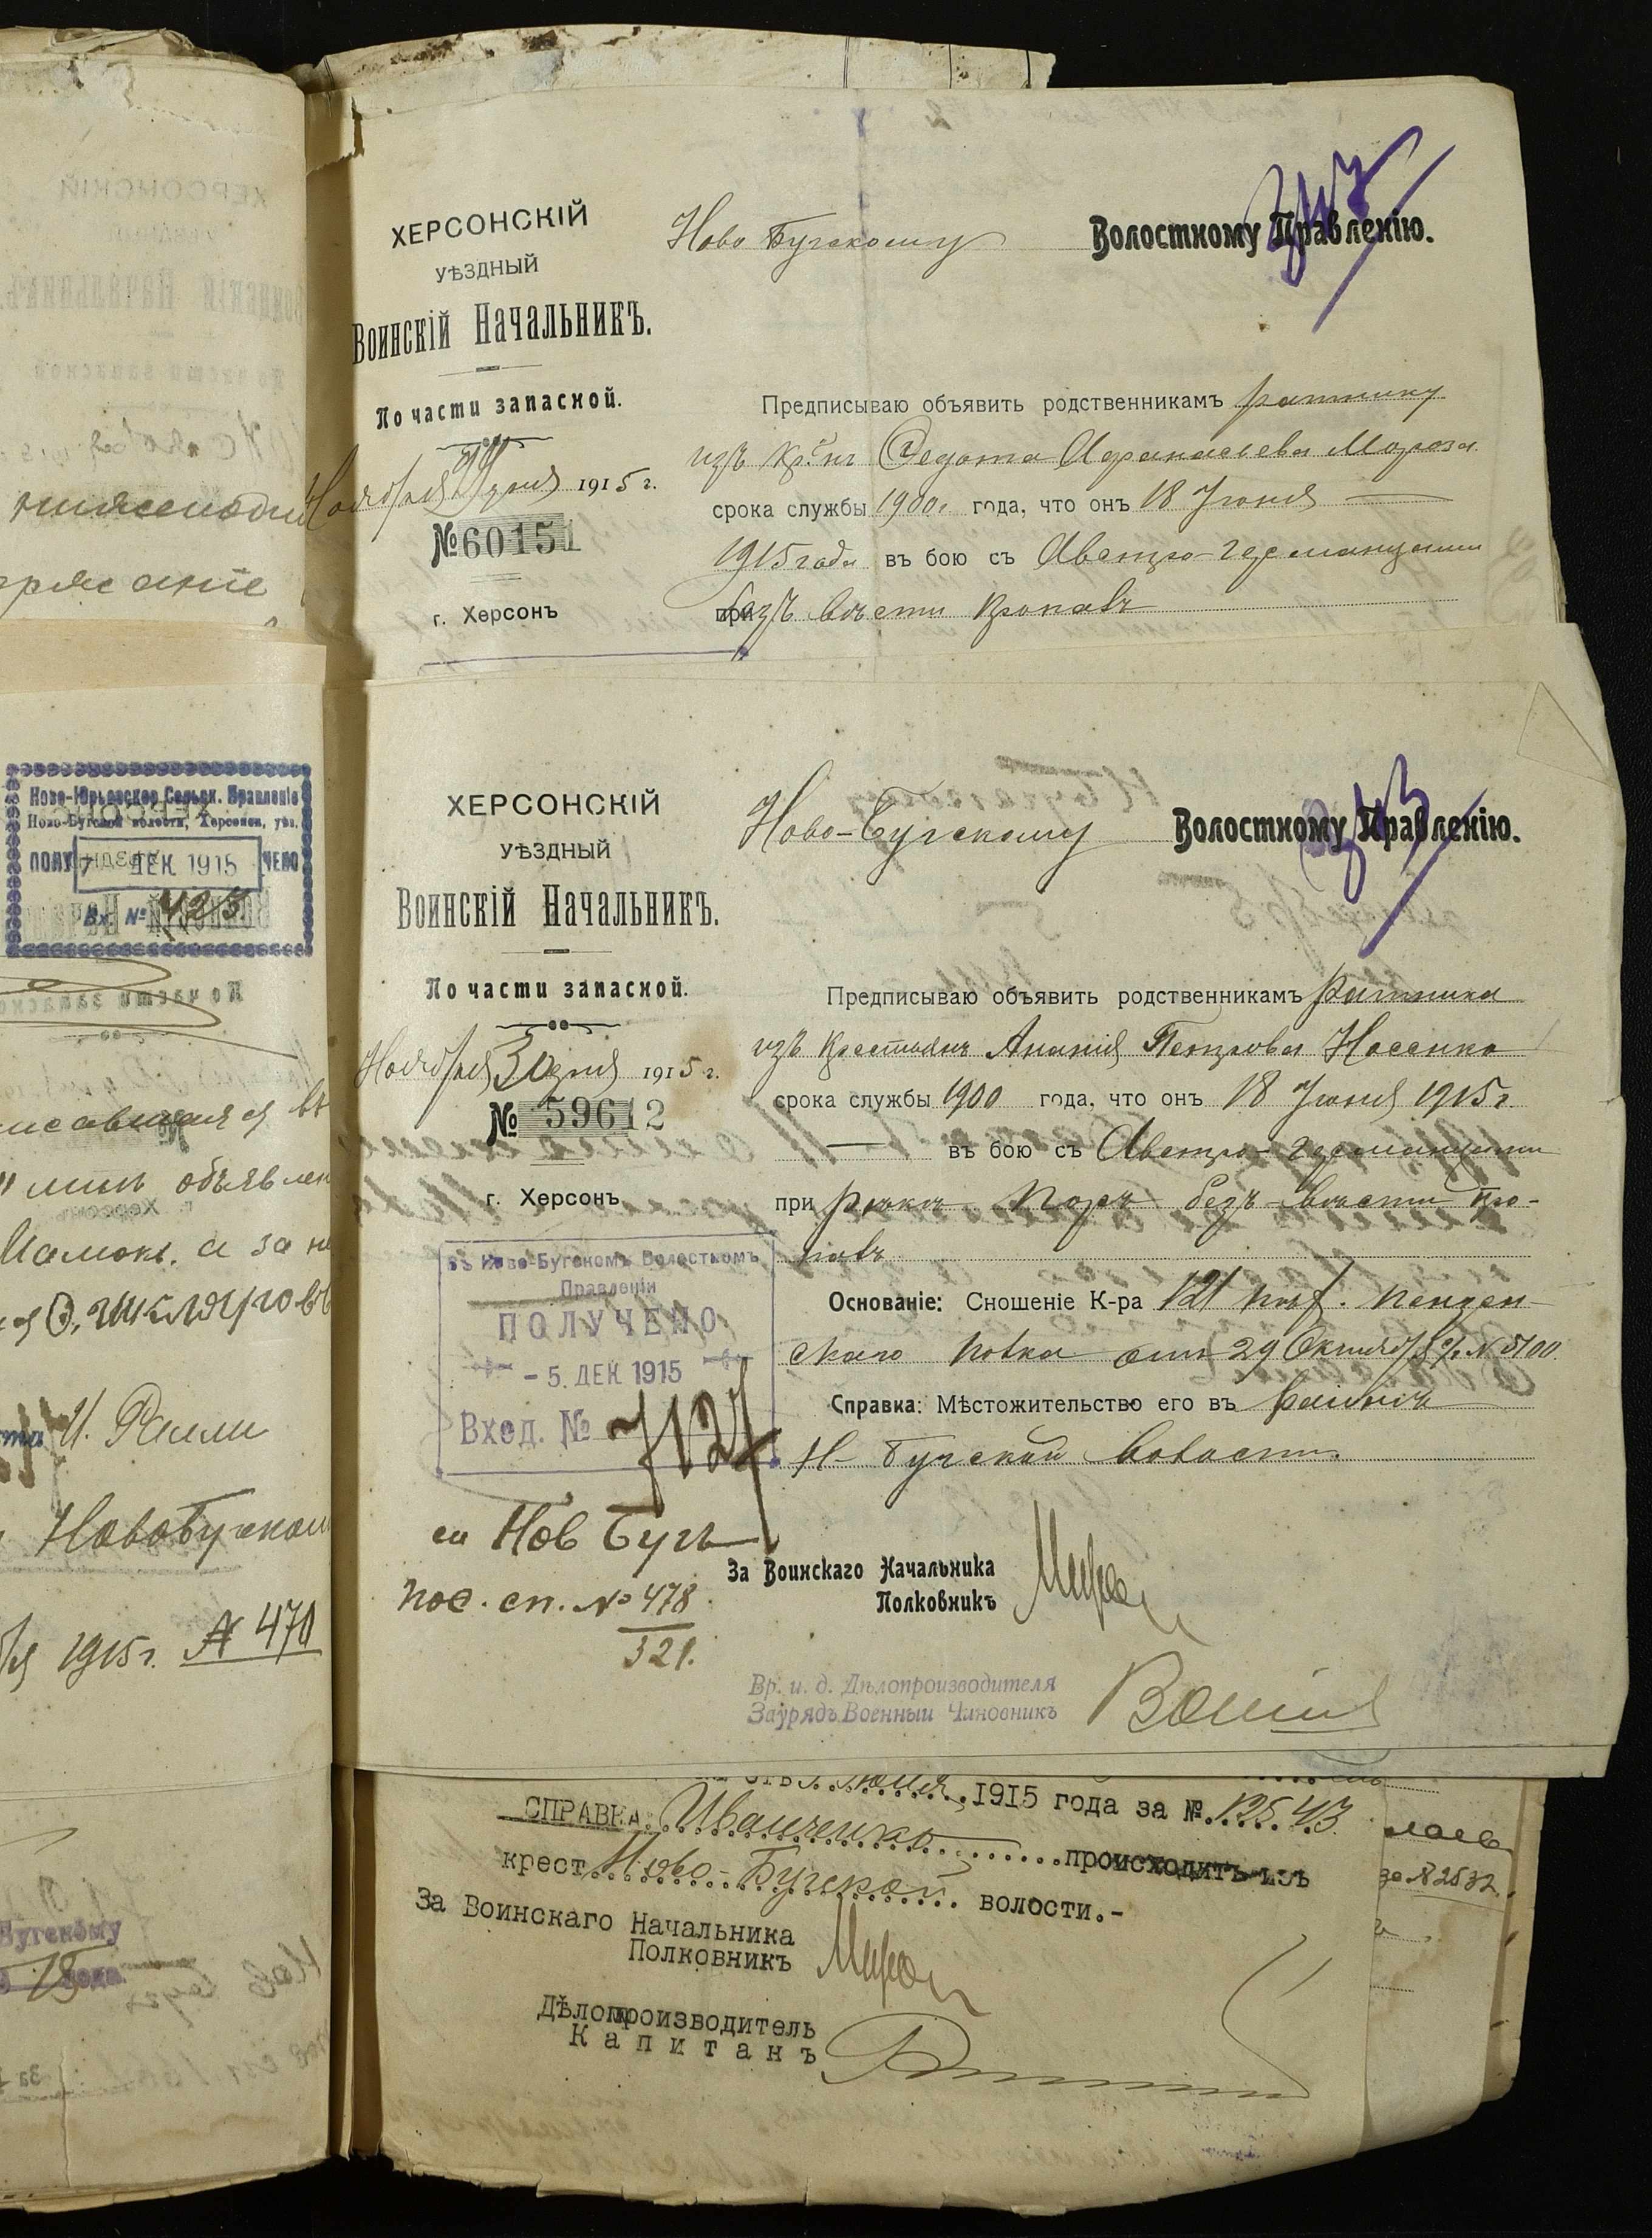 ХЕРСОНСКІЙ
УѢЗДНЫЙ
Воинскій Начальникъ.
По части запасной.
Ноября 29 дня 1915 г.
№ 60151
г. Херсонъ
Ново Бугскому Волостному Правленію.
Предписываю объявить родственникамъ ратнику
изъ кр-нъ Федота Афанасьева Мороза
срока службы 1900 г. года, что онъ 18 Іюня
1915 года въ бою съ Австро-германцами
при безъ вѣсти пропалъ
ХЕРСОНСКІЙ
УѢЗДНЫЙ
Воинскій Начальникъ.
По части запасной.
Ноября 30 дня 1915 г.
№ 59612
г. Херсонъ
Ново-Бугскому Волостному Правленію.
Предписываю объявить родственникамъ ратника
изъ крестьянъ Ананія Петрова Носенко
срока службы 1900 года, что онъ 18 Іюня 1915 г
въ бою съ Австро-германцами
при рѣкѣ Порѣ безъ вѣсти про-
палъ
Основаніе: Сношеніе К-ра 121 пѣх. Пензен-
скаго полка отъ 29 Октября с/г № 5100.
Справка: Мѣстожительство его въ районѣ
Н-Бугской волости.
Въ Ново-Бугскомъ Волостномъ
Правленіи
ПОЛУЧЕНО
- 5. ДЕК 1915
Вход. № 7127
с. Нов Бугъ
пос. сп. № 478
321.
За Воинскаго Начальника
Полковникъ
Вр. и. д. Дѣлопроизводителя
Зауряд. Военный Чиновникъ
1915 года за № 12543
СПРАВКА: Иванченко происходитъ изъ
крест. Ново-Бугской волости.-
За Воинскаго Начальника
Полковникъ
Дѣлопроизводитель
Капитанъ
за № 2532
Ново-Юрьевское Сельск. Правленіе
Ново-Бугской волости, Херсонск. уѣз.
ПОЛУЧЕНО
7 ДЕК 1915
Вх. № 423
объявлен
а за не
Новобугском
1915 г. № 470
Бугскому